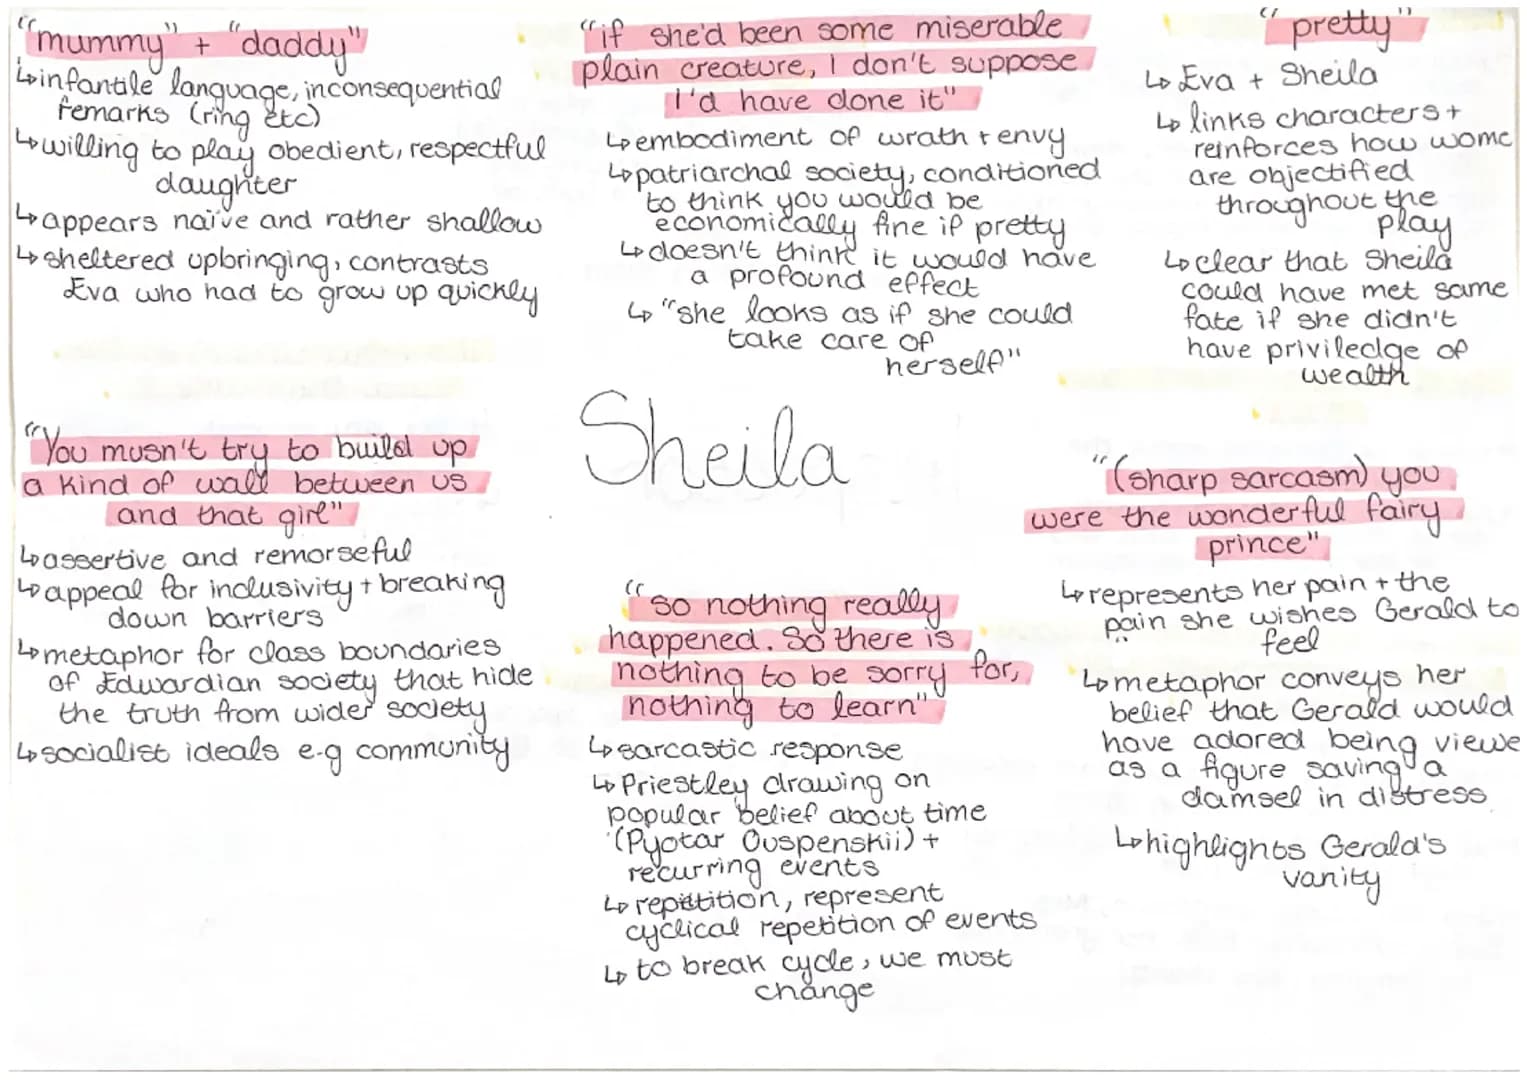 "mummy" + "daddy"
↳infantile language, inconsequential
remarks (ring etc)
↳willing to play obedient, respectful
daughter
↳appears naïve and rather shallow
↳sheltered upbringing, contrasts
Eva who had to grow up quickly
"if she'd been some miserable
plain creature, I don't suppose
I'd have done it"
↳embodiment of wrath + envy
↳patriarchal society, conditioned
to think you would be
economically fine if pretty
↳doesn't think it would have
a profound effect
↳"she looks as if she could
take care of
herself"
"pretty"
↳Eva + Sheila
↳links characters +
reinforces how wome
are objectified
throughout the
play
↳clear that Sheila
could have met same
fate if she didn't
have priviledge of
wealth
Sheila
"You musn't try to build up
a kind of wall between us
and that girl"
↳assertive and remorseful
↳appeal for inclusivity + breaking
down barriers
↳metaphor for class boundaries
of Edwardian society that hide
the truth from wider society
↳socialist ideals e.g community
"so nothing really
happened. So there is
nothing to be sorry for,
nothing to learn"
↳sarcastic response
↳Priestley drawing on
popular belief about time
(Pyotar Ouspenskii) +
recurring events
↳repitition, represent
cyclical repetition of events
↳to break cycle, we must
change
"(sharp sarcasm) you
were the wonderful fairy
prince"
↳represents her pain + the
pain she wishes Gerald to
feel
↳metaphor conveys her
belief that Gerald would
have adored being viewe
as a figure saving a
damsel in distress
↳highlights Gerald's
vanity